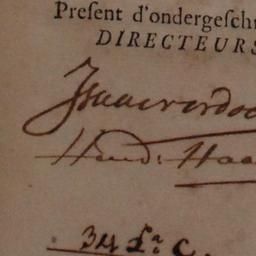 Preſent d'ondergeſchr
DIRECTEURS
Isaacverdoe
Hend: Haa
34 Lr. C.